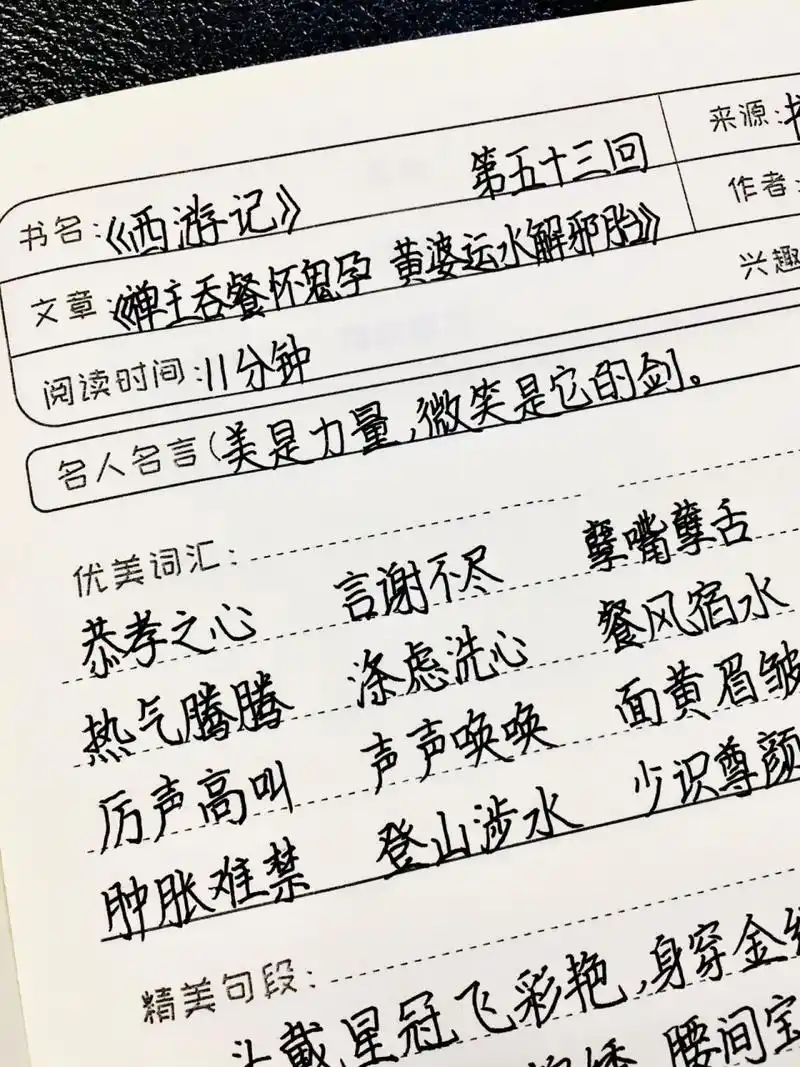 书名:《西游记》 第五十三回
来源:
文章:《禅主吞餐怀鬼孕 黄婆运水解邪胎》
作者:
阅读时间:11分钟
兴趣
名人名言(美是力量,微笑是它的剑。
优美词汇:
恭孝之心 言谢不尽 孽嘴孽舌
热气腾腾 涤虑洗心 餐风宿水
厉声高叫 声声唤唤 面黄眉皱
肿胀难禁 登山涉水 少识尊颜
精美句段:
头戴星冠飞彩艳,身穿金
腰间宝